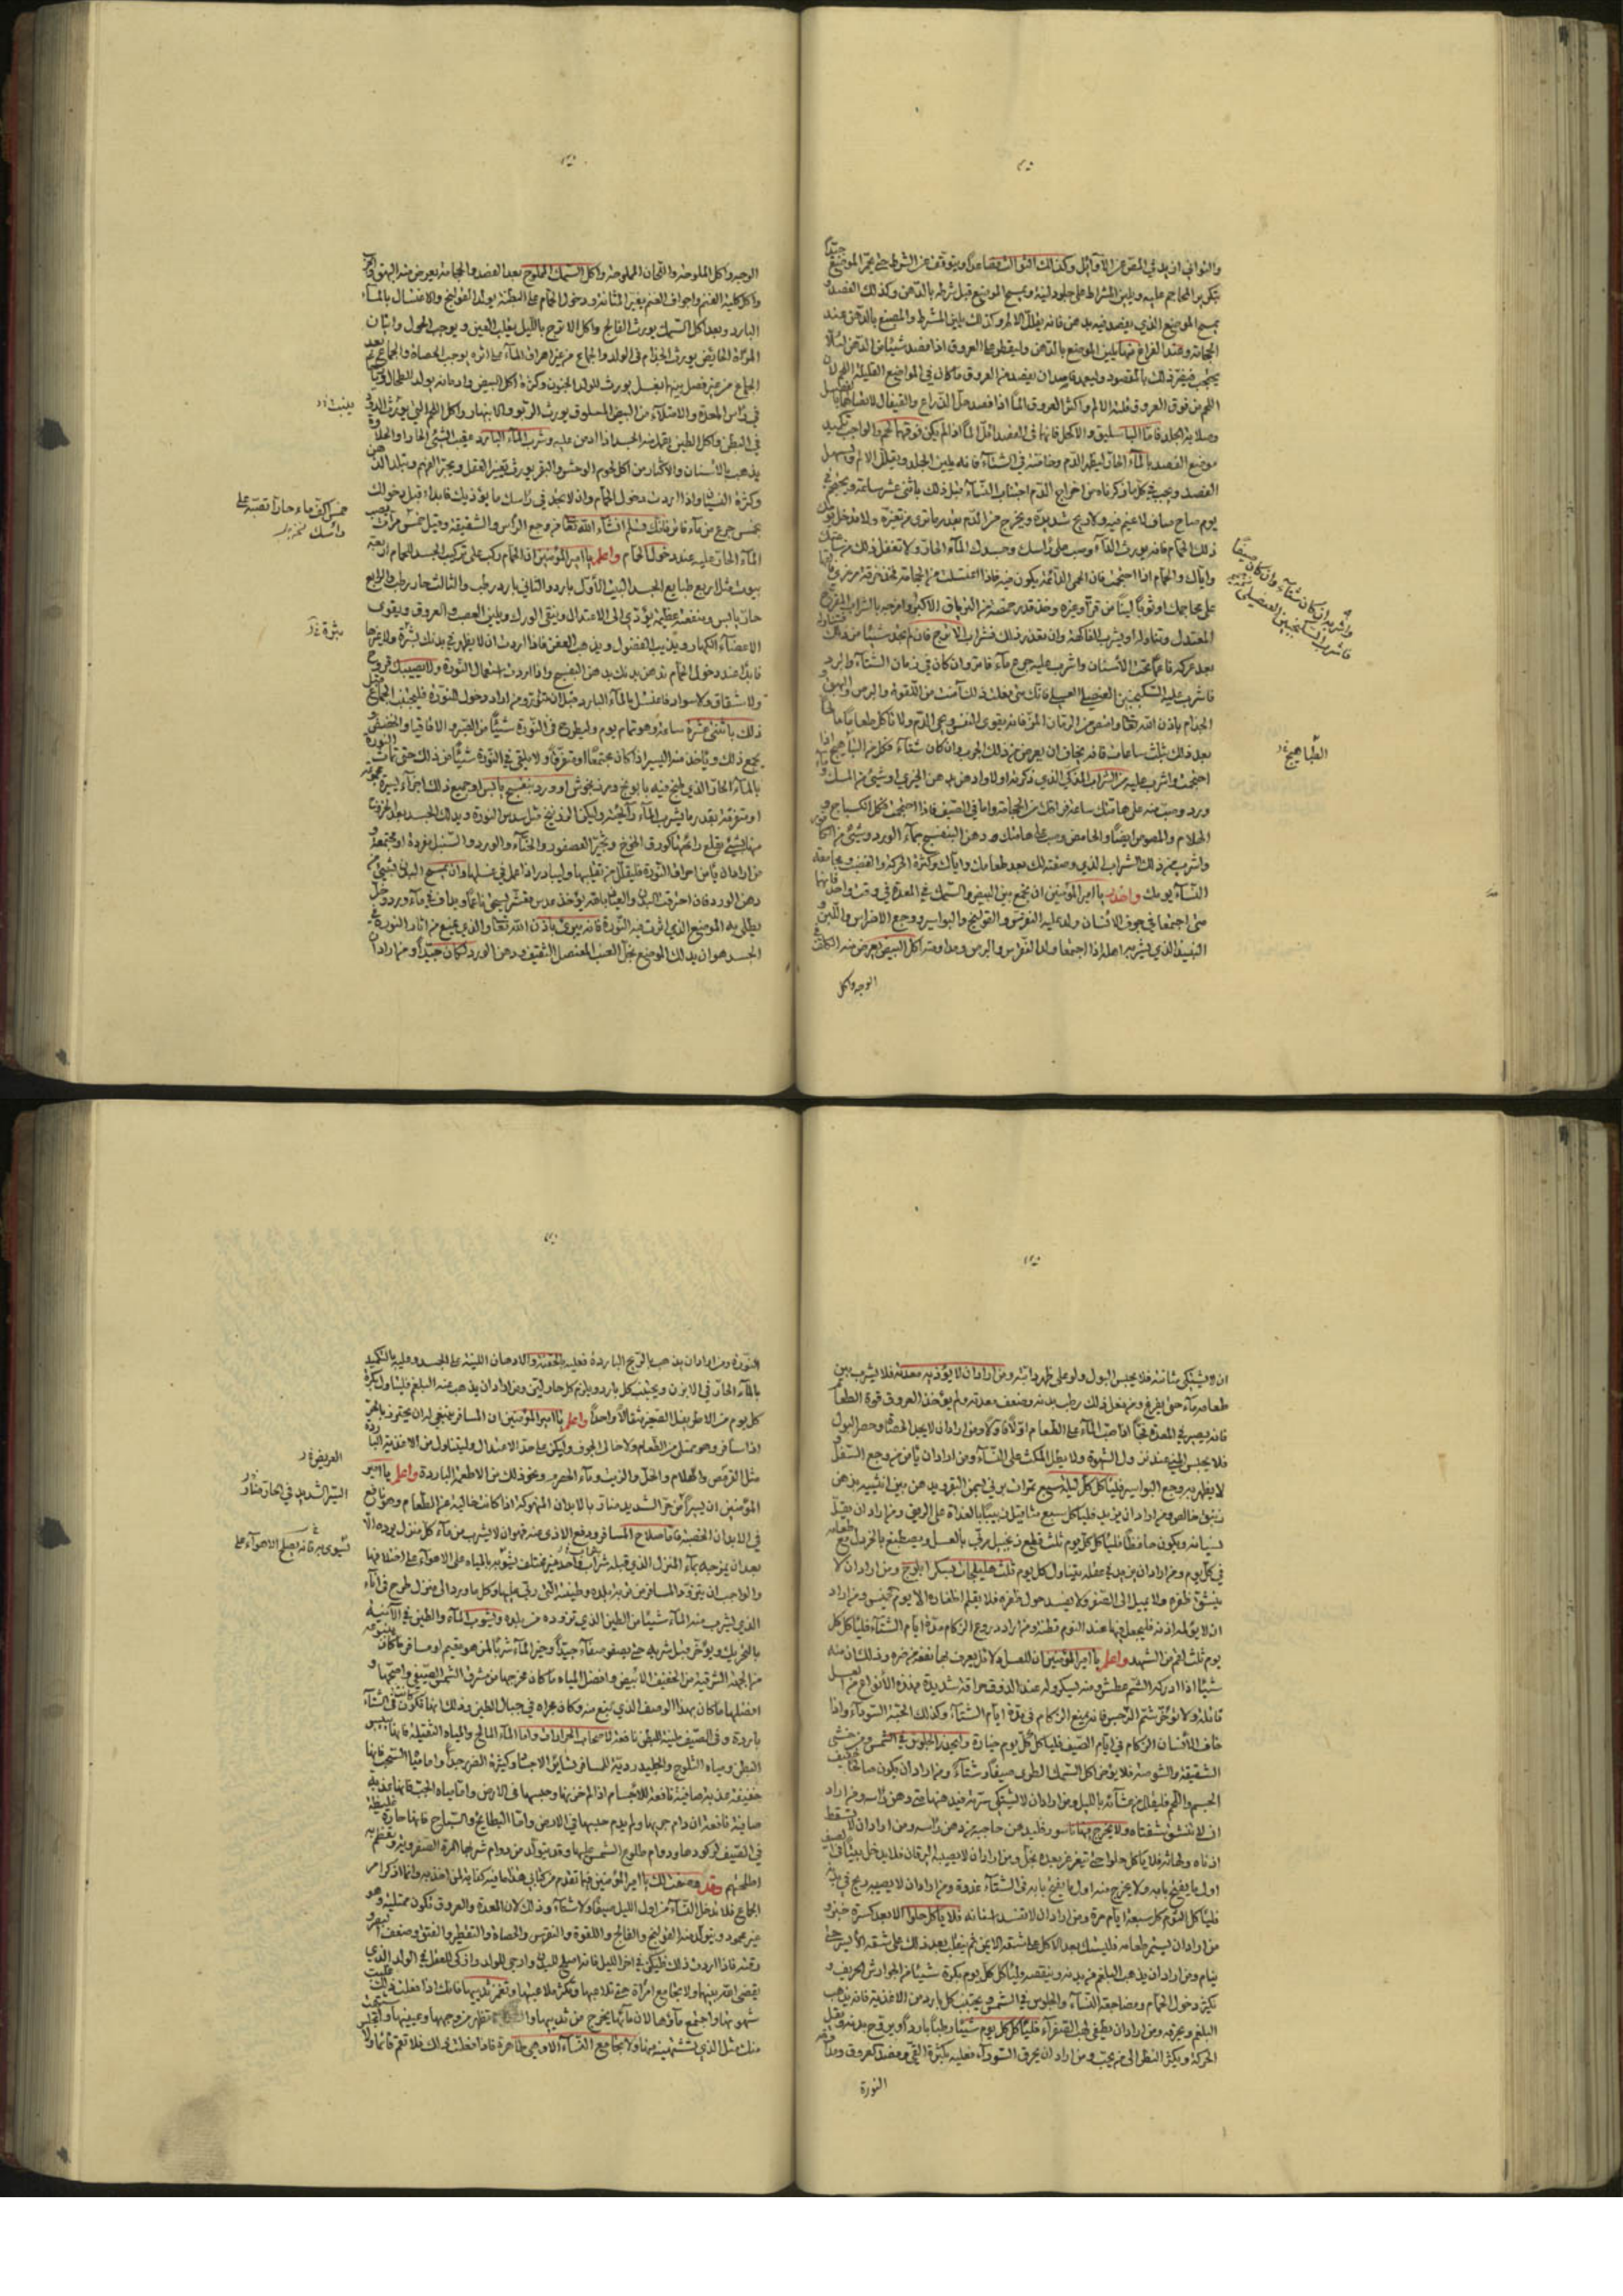 والثواني ازيد في المص من الأوائل وكذلك الثوالث فصاعدا ويتوقف عن الشرط حتى يحمر الموضع جيدا
بتكرير المحاجم عليه ويلين المشراط على جلود لينة ويمسح الموضع قبل شرطه بالدهن وكذلك الفصد
يمسح الموضع الذي يفصد فيه بدهن فانه يقلل الالم وكذلك يلين المشرط والمبضع بالدهن عند
الحجامة وعند الفراغ منها يلين الموضع بالدهن وليقطر على العروق اذا فصد شيئا من الدهن لئلا
يحتجب فيضر ذلك بالمقصود وليعمد الفاصد ان يفصد من العروق ما كان في المواضع القليلة اللحم لان
اللحم من فوق العروق قلة الالم واكثر العروق الما اذا فصد حبل الذراع والقيفال لاتصالهما بالعضل
وصلابة الجلد فاما الباسليق والاكحل فانهما في الفصد اقل الما اذا لم يكن فوقهما لحم والواجب تكميد
موضع الفصد بالماء الحار ليظهر الدم وخاصة في الشتاء فانه يلين الجلد ويقلل الالم ويسهل
الفصد ويجب في كل ما ذكرناه من اخراج الدم اجتناب النساء قبل ذلك باثنى عشر ساعة ويحتجم في
يوم صاح صاف لا غيم فيه ولا ريح شديدة ويخرج من الدم بقدر ما ترى من تغيره ولا تدخل يومك
ذلك الحمام فانه يورث الداء وصب على راسك وجسدك الماء الحار ولا تغفل ذلك من ساعتك
واياك والحمام اذا احتجمت فان الحمى الدائمة يكون فيه فاذا اغتسلت من الحجامة فخذ خرقة مرعزي فالقها
على محاجمك او ثوبا لينا من قز او غيره وخذ قدر حمصة من الترياق الاكبر وامزجه بالشراب المفرح
المعتدل وتناوله او بشراب الفاكهة وان تعذر ذلك فشراب الاترج فان لم تجد شيئا من ذلك فتناوله
بعد عركه ناعما تحت الاسنان واشرب عليه جرع ماء فاتر وان كان في زمان الشتاء والبرد
فاشرب عليه السكنجبين العنصلي العسلي فانك متى فعلت ذلك امنت من اللقوة والبرص والبهق
والجذام باذن الله تعالى وامتص من الرمان المز فانه يقوى النفس ويحيى الدم ولا تاكل طعاما مالحا
بعد ذلك بثلث ساعات فانه يخاف ان يعرض من ذلك الجرب وان كان شتاء فكل من الطباهيج اذا
احتجمت واشرب عليه من الشراب المذكى الذي ذكرته اولا وادهن بدهن الخيرى او شئ من المسك وماء
ورد وصب منه على هامتك ساعة فراغك من الحجامة واما في الصيف فاذا احتجمت فكل السكباج و
الهلام والمصوص ايضا والحامض وصب على هامتك دهن البنفسج بماء الورد وشئ من الكافور
واشرب من ذلك الشراب الذي وصفته لك بعد طعامك واياك وكثرة الحركة والغضب ومجامعة
النساء ليومك واحذر يا امير المؤمنين ان تجمع بين البيض والسمك في المعدة في وقت واحد فانهما
متى اجتمعا في جوف الانسان ولد عليه النقرس والقولنج والبواسير ووجع الاضراس واللبن و
النبيذ الذي يشربه اهله اذا اجتمعا ولد النقرس والبرص ومداومة اكل البيض يعرض منه الكلف في
الوجه واكل
واشربه ان كان شتاء وان كان صيفا
فاشرب السكنجبين العنصلي
الطباهيج
الوجه واكل الملوحة واللحمان المملوحة واكل السمك المملوح بعد الفصد والحجامة يعرض منه البهق والجرب
واكل كلية الغنم واجواف الغنم يغير المثانة ودخول الحمام على البطنة يولد القولنج والاغتسال بالماء
البارد وبعد اكل السمك يورث الفالج واكل الاترج بالليل يقلب العين ويوجب الحول واتيان
المرءة الحائض يورث الجذام في الولد والجماع من غير اهراق الماء على اثره يوجب الحصاة والجماع بعد
الجماع من غير فصل بينهما بغسل يورث للولد الجنون وكثرة اكل البيض وادمانه يولد الطحال ورياحا
في راس المعدة والامتلاء من البيض المسلوق يورث الربو والابتهار واكل اللحم الني يورث الدود
في البطن واكل التين يقمل منه الجسد اذا ادمن عليه وشرب الماء البارد عقيب الشئ الحار او الحلاوة
يذهب بالاسنان والاكثار من اكل لحوم الوحش والبقر يورث تغير العقل وتحير الفهم وتبلد الذهن
وكثرة النسيان واذا اردت دخول الحمام وان لا تجد في راسك ما يؤذيك فابدا قبل دخولك
بخمس جرع من ماء فاتر فانك تسلم انشاء الله تعالى من وجع الراس والشقيقة وقيل خمس مرات يصب
الماء الحار عليه عند دخول الحمام واعلم يا امير المؤمنين ان الحمام ركب على تركيب الجسد للحمام اربعة
بيوت مثل اربع طبايع الجسد البيت الاول بارد يابس والثاني بارد رطب والثالث حار رطب والرابع
حار يابس ومنفعة عظيمة يؤدى الى الاعتدال وينقى الورك ويلين العصب والعروق ويقوى
الاعضاء الكبار ويذيب الفضول ويذهب العفن فاذا اردت ان لا يظهر في بدنك بثرة ولا غيرها
فابدا عند دخول الحمام تدهن بدنك بدهن البنفسج واذا اردت استعمال النورة ولا يصيبك قروح
ولا شقاق ولا سواد فاغتسل بالماء البارد قبل ان تتنور ومن اراد دخول النورة فليجتنب الجماع قبل
ذلك باثنتى عشرة ساعة وهو تمام يوم وليطرح في النورة شيئا من الصبر والاقاقيا والحضض و
يجمع ذلك وياخذ منه اليسير اذا كان مجتمعا او متفرقا ولا يلقى في النورة شيئا من ذلك حتى تماث النورة
بالماء الحار الذي طبخ فيه بابونج ومرزنجوش او ورد بنفسج يابس او جميع ذلك اجزاء يسيرة مجموعة
او متفرقة بقدر ما يشرب الماء رائحته وليكن الزرنيخ مثل سدس النورة ويدلك الجسد بعد الخروج
منها بشئ يقلع رائحتها كورق الخوخ وثجير العصفر والحناء والورد والسنبل مفردة او مجتمعة و
من اراد ان يأمن احراق النورة فليقلل من تقليبها وليبادر اذا عمل في غسلها وان يمسح البدن بشئ من
دهن الورد فان احرقت البدن والعياذ بالله يؤخذ عدس مقشر يسحق ناعما ويداف في ماء ورد وخل
يطلى به الموضع الذي اثرت فيه النورة فانه يبرئ باذن الله تعالى والذي يمنع من اثار النورة في
الجسد هو ان يدلك الموضع بخل العنب العنصل الثقيف ودهن الورد دلكا جيدا ومن اراد
ينبت
خمس اكف ماء حار تصبه على
راسك
بثرة
ان لا يشتكى مثانته فلا يحبس البول ولو على ظهر دابته ومن اراد ان لا يؤذيه معدته فلا يشرب بين
طعامه ماء حتى يفرغ ومن فعل ذلك رطب بدنه وضعف معدته ولم ياخذ العروق قوة الطعام
فانه يصير في المعدة فجا اذا صب الماء على الطعام اولا فاولا ومن اراد ان لا يجد الحصاة وحصر البول
فلا يحبس المنى عند نزول الشهوة ولا يطل المكث على النساء ومن اراد ان يأمن من وجع السفل و
لا يظهر به وجع البواسير فلياكل كل ليلة سبع تمرات برنى بسمن البقر ويدهن بين انثييه بدهن
زنبق خالص ومن اراد ان يزيد في حفظه فلياكل سبع مثاقيل زبيبا بالغداة على الريق ومن اراد ان يقل
نسيانه ويكون حافظا فلياكل كل يوم ثلث قطع زنجبيل مربى بالعسل ويصطبغ بالخردل مع طعامه
في كل يوم ومن اراد ان يزيد في عقله يتناول كل يوم ثلث هليلجات بسكر ابلوج ومن اراد ان لا
ينشق ظفره ولا يميل الى الصفرة ولا يفسد حول ظفره فلا يقلم اظفاره الا يوم الخميس ومن اراد
ان لا يؤلمه اذنه فليجعل فيها عند النوم قطنة ومن اراد ردع الزكام مدة ايام الشتاء فلياكل كل
يوم ثلث لقم من الشهد واعلم يا امير المؤمنين ان للعسل دلائل يعرف بها نفعه من ضره وذلك ان منه
شيئا اذا ادركه الشم عطش ومنه يسكر وله عند الذوق حراقة شديدة فهذه الانواع من العسل
قاتلة ولا تؤخر شم النرجس فانه يمنع الزكام في مدة ايام الشتاء وكذلك الحبة السوداء واذا
خاف الانسان الزكام في ايام الصيف فلياكل كل يوم خيارة وليحذر الجلوس في الشمس ومن خشى
الشقيقة والشوصة فلا يؤخر اكل السمك الطرى صيفا وشتاء ومن اراد ان يكون صالحا خفيف
الجسم واللحم فليقلل من عشائه بالليل ومن اراد ان لا يشتكى سرته فليدهنها متى دهن راسه ومن اراد
ان لا تنشق شفتاه ولا يخرج فيها ناسور فليدهن حاجبه من دهن راسه ومن اراد ان لا تسقط
اذناه ولهاته فلا ياكل حلوا حتى يتغرغر بعده بخل ومن اراد ان لا يصيبه اليرقان فلا يدخل بيتا في الصيف
اول ما يفتح بابه ولا يخرج منه اول ما يفتح بابه في الشتاء غدوة ومن اراد ان لا يصيبه ريح في بدنه
فلياكل الثوم كل سبعة ايام مرة ومن اراد ان لا تفسد اسنانه فلا ياكل حلوا الا بعد كسرة خبز و
من اراد ان يستمرئ طعامه فليستك بعد الاكل على شقه الايمن ثم ينقلب بعد ذلك على شقه الايسر حتى
ينام ومن اراد ان يذهب البلغم من بدنه وينقصه فلياكل كل يوم بكرة شيئا من الجوارش الحريف و
يكثر دخول الحمام ومضاجعة النساء والجلوس في الشمس ويجتنب كل بارد من الاغذية فانه يذهب
البلغم ويحرقه ومن اراد ان يطفئ لهب الصفراء فلياكل كل يوم شيئا رطبا باردا ويروح بدنه ويقل
الحركة ويكثر النظر الى من يحب ومن اراد ان يحرق السوداء فعليه بكثرة القئ وفصد العروق ومداومة
النورة
النورة ومن اراد ان يذهب بالريح الباردة فعليه بالحقنة والادهان اللينة على الجسد وعليه بالتكميد
بالماء الحار في الابزن ويجتنب كل بارد ويلزم كل حار لين ومن اراد ان يذهب عنه البلغم فليتناول بكرة
كل يوم من الاطريفل الصغير مثقالا واحدا واعلم يا امير المؤمنين ان المسافر ينبغى له ان يحترز بالحر
اذا سافر وهو ممتلئ من الطعام ولا خالى الجوف وليكن على حد الاعتدال وليتناول من الاغذية الباردة
مثل القريص والهلام والخل والزيت وماء الحصرم ونحو ذلك من الاطعمة الباردة واعلم يا امير
المؤمنين ان يسير من حر الشديد ضار بالابدان المنهوكة اذا كانت خالية من الطعام وهو نافع
في الابدان الخصبة فاما صلاح المسافر ودفع الاذى عنه فهو ان لا يشرب من ماء كل منزل يرده الا
بعد ان يمزجه بماء المنزل الذي قبله او بشراب واحد غير مختلف يشوبه بالمياه على الاهواء على اختلافها
والواجب ان يتزود المسافر من تربة بلده وطينته التى ربى عليها وكل ما ورد الى منزل طرح في انائه
الذي يشرب منه الماء شيئا من الطين الذي تزوده من بلده ويشوب الماء والطين في الانية
بالتحريك ويؤخر قبل شربه حتى يصفو صفاء جيدا وخير الماء شربا لمن هو مقيم او مسافر ما كان ينبوعه
من الجهة الشرقية من الخفيف الابيض وافضل المياه ما كان مخرجها من مشرق الشمس الصيفى واصحها و
افضلها ما كان بهذا الوصف الذي نبع منه وكان مجراه في جبال الطين وذلك انها تكون في الشتاء
باردة وفي الصيف ملينة للبطن نافعة لاصحاب الحرارات واما الماء المالح والمياه الثقيلة فانها تيبس
البطن ومياه الثلوج والجليد ردية لسائر الاجساد وكثيرة الضرر جدا واما مياه السحب فانها
خفيفة عذبة صافية نافعة للاجسام اذا لم يطل خزنها وحبسها في الارض واما مياه الجب فانها عذبة
صافية نافعة ان دام جريها ولم يدم حبسها في الارض واما البطايح والسباخ فانها حارة غليظة
في الصيف لركودها ودوام طلوع الشمس عليها وقد يتولد من دوام شربها المرة الصفراوية وتعظم به
اطحلتهم وقد وصفت لك يا امير المؤمنين فيما تقدم من كتابى هذا ما فيه كفاية لمن اخذ به وانا اذكر امر
الجماع فلا تدخل النساء من اول الليل صيفا ولا شتاء وذلك لان المعدة والعروق تكون ممتلية وهو
غير محمود ويتولد منه القولنج والفالج واللقوة والنقرس والحصاة والتقطير والفتق وضعف البصر و
رقته فاذا اردت ذلك فليكن في اخر الليل فانه اصلح للبدن وارجى للولد وازكى للعقل في الولد الذي
يقضى الله بينهما ولا تجامع امراة حتى تلاعبها وتكثر ملاعبتها وتغمز ثدييها فانك اذا فعلت ذلك غلبت
شهوتها واجتمع ماؤها لان ماءها يخرج من ثدييها والشهوة تظهر من وجهها وعينيها واشتهت
منك مثل الذي تشتهيه منها ولا تجامع النساء الا وهى طاهرة فاذا فعلت ذلك فلا تقم قائما ولا
العريض
اليسير الشديد في الحار ضار
يشوى به فانه يصلح الاهواء على